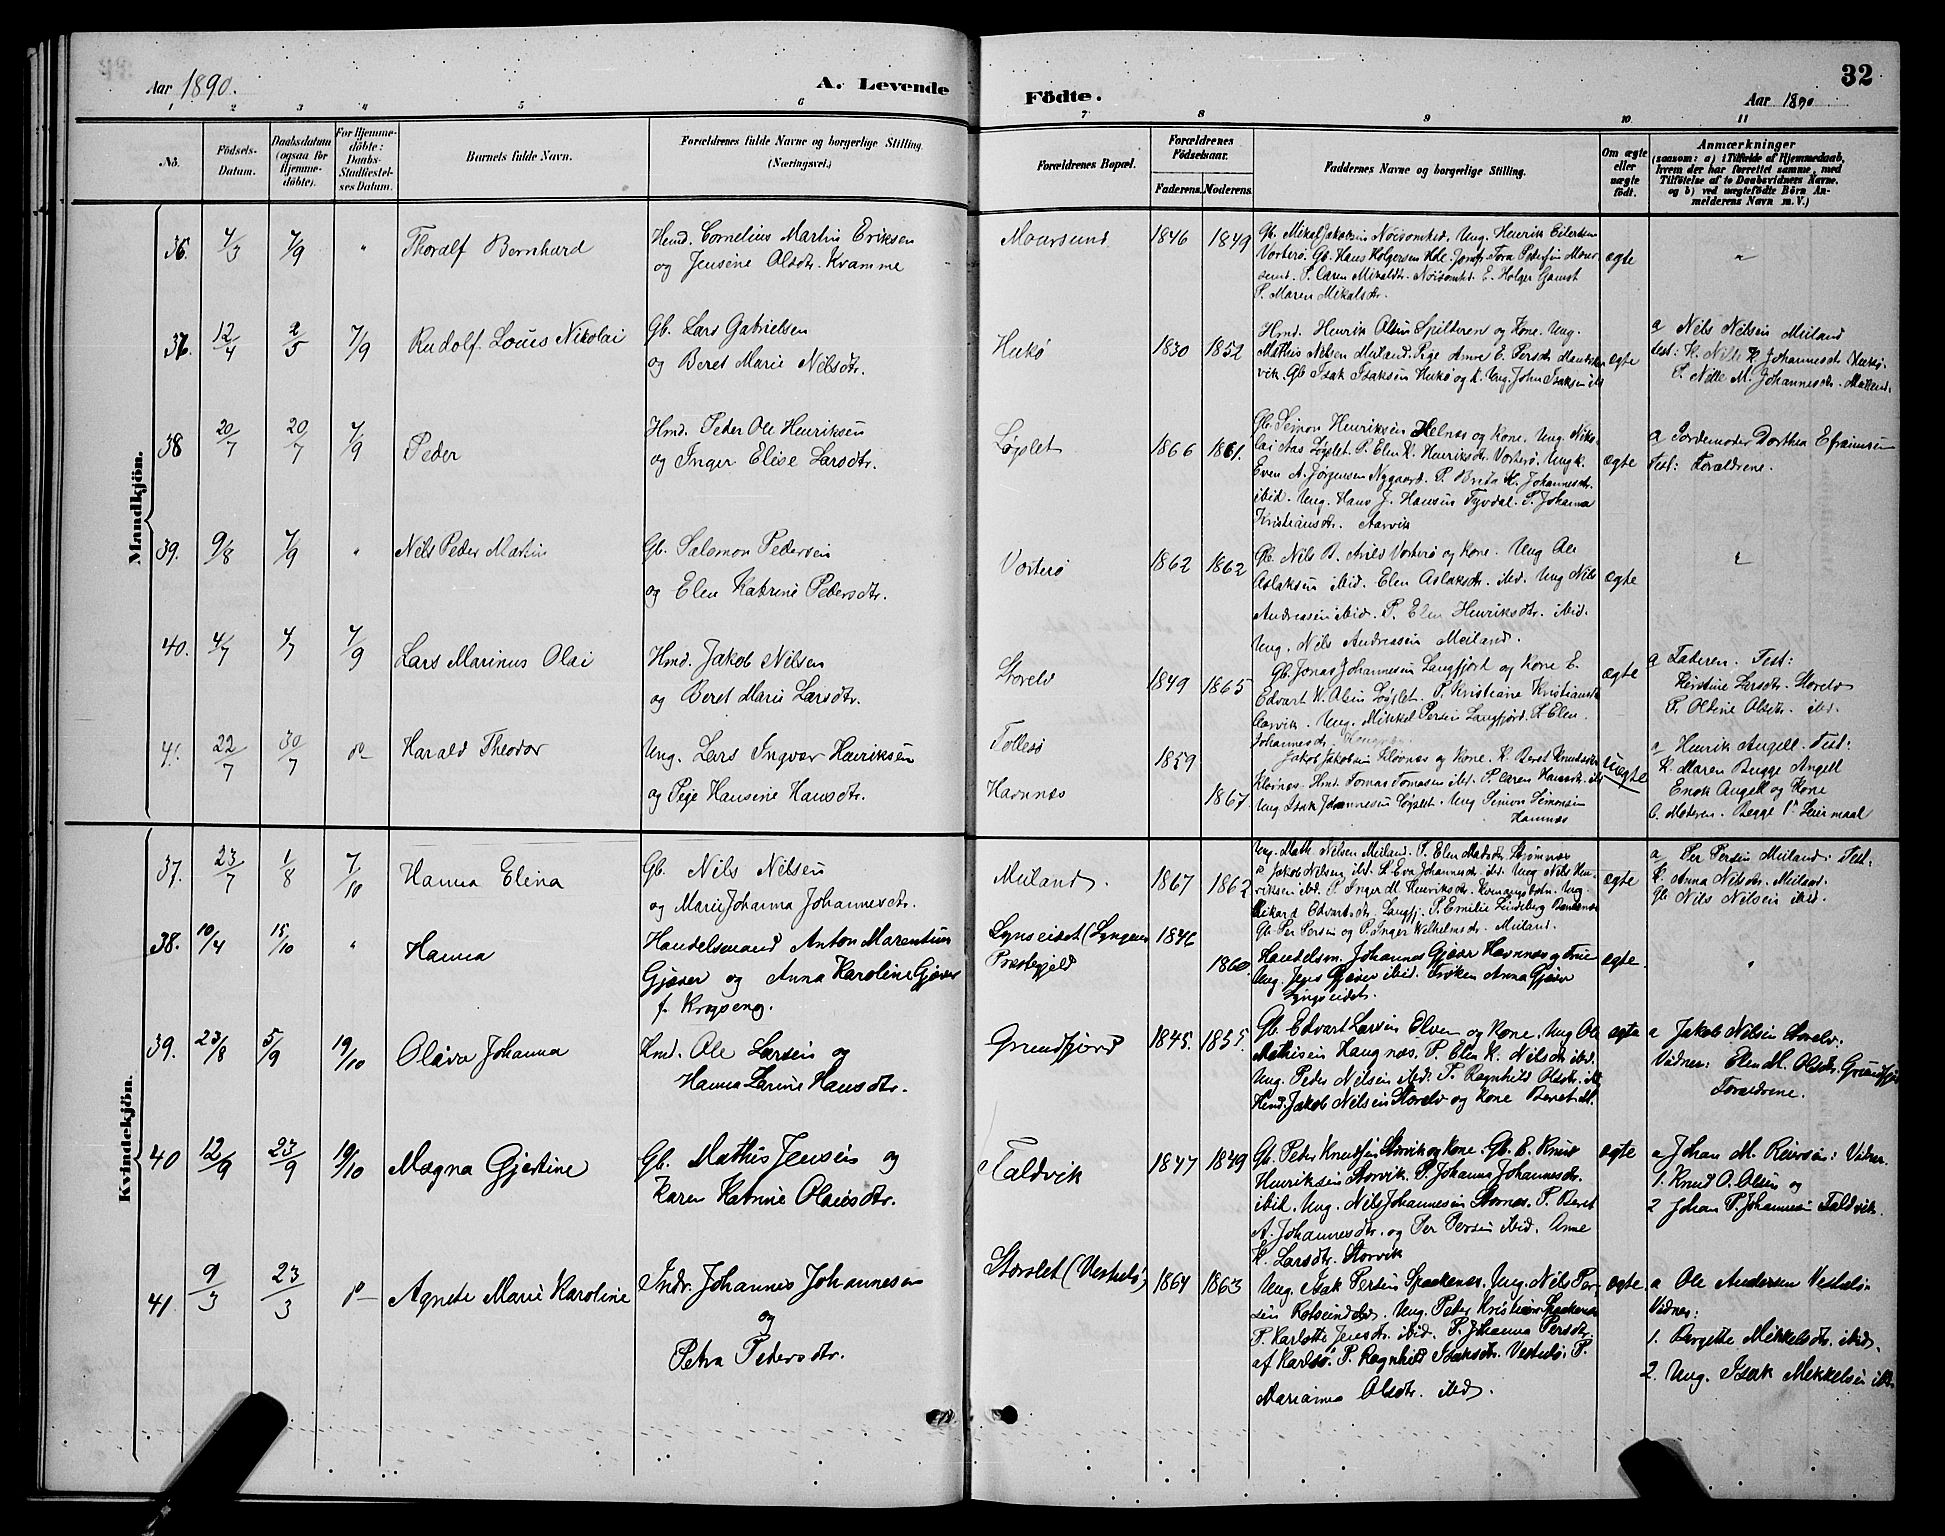 Aar 1890.
A. Levende
Födte.
32
Aar 1890
1 2 3 4 5 6 7 8 9 10 11
No.
Födsels-Datum.
Daabsdatum (ogsaa for Hjemme-döbte).
For Hjemme-döbte: Daabs-Stadfæstel-ses Datum.
Barnets fulde Navn.
Forældrenes fulde Navne og borgerlige Stilling. (Næringsvei.)
Forældrenes Bopæl.
Forældrenes Födselsaar.
Faderens.
Moderens.
Faddernes Navne og borgerlige Stilling.
Om ægte eller uægte født.
Anmærkninger
(saasom: a) i Tilfælde af Hjemmedaab,
hvem der har forrettet samme, med
Tilföielse af to Daabsvidners Navne,
og b) ved uægtefødte Börn An-
melderens Navn m. V.)
Mandkjön.
36. 4/3 7/9 " Thoralf Bernhard
Hmd. Cornelius Martin Eriksen
og Jensine Olsdtr. Kvamme
Maursund 1846 1849
Gb. Mikal Jakobsen Noisomhed. Ung. Henrik Eilertsen
Vorterø. Gb. Hans Holgersen Hole. Jomf. Tora Pedersen Maur-
sund. P. Caren Mikaldtr. Noisomhd. E. Holger Gamst
P. Maren Mikalsdtr.
ægte "
37. 12/4 2/5 7/9 Rudolf Louis Nikolai
Gb. Lars Gabrielsen
og Beret Marie Nilsdtr.
Hukø 1830 1852
Hmd. Henrik Olsen Spilderens og Kone. Ung.
Mathis Nilsen Meiland. Pige Anne E. Persdtr
vik. Gb Isak Isaksen Hukø og K. Ung. John Isaksen ibd
ægte
a Nils Nilsen Meiland
Test: K. Nille K. Johannesdtr. Hukø.
P. Nille M. Johannesdtr. Meiland.
38 20/7 20/7 7/9 Peder
Hmd. Peder Ole Henriksen
og Inger Elise Larsdtr.
Løgslet 1866 1861.
Gb. Simon Henriksen Helnæs og Kone. Ung. Niko-
lai Aas Løgslet. P. Elen K. Henriksdtr Vorterø. Ungk.
Even A. Jørgensen Nygaard. P. Brita M. Johannesdtr.
ibid. Ung. Hans J. Hansen Tyvdal. P. Johanna
Kristiansdtr. Aarvik
ægte
a Jordemoder Dorthea Efraimsen
Test: Forældrene.
39. 9/8 7/9 " Nils Peder Martin
Gb. Salomon Pedersen
og Elen Katrine Pedersdtr.
Vorterø 1862 1862
Gb. Nils B. Nils Vorterø og Kone. Ung Ole
Aslaksen ibid. Elen Aslaksdtr. ibd. Ung Nils
Andreasen ibid. P. Elen Henriksdtr. ibid.
Ung. Nils Andreasen Meiland.
ægte "
40. 4/7 4/7 7/9 Lars Marinus Olai
Hmd. Jakob Nilsen
og Beret Marie Larsdtr.
Storelv 1849 1865
Gb. Jonas Johannesen Langfjord og Kone E.
Edvart K. Olsen Løgslet. P. Kristiane Kristiansd
Aarvik. Ung. Mikkel Persen Langfjord. P. Elen
Johannesdtr.
ægte
a Faderen. Test:
Kirstine Larsdtr. Storelv
P. Oldine Olsdtr. ibd.
41. 22/7 30/7 do Harald Theodor
Ung. Lars Ingvar Henriksen
og Pige Hansine Hansdtr.
Follesø
Havnnæs
1859 1867
Jakob Jakobsen Kløvnæs og Kone. K. Beret Knudsdtr
Kløvnæs. Hmd. Tomas Tomasen ibd. P. Caren Hansdtr. ibd
Ung Isak Johannesen Løgslet. Ung Simon Simonsen
Havnnæs
uægte
a Henrik Angell. Test:
K. Maren Bugge Angell
Enok Angell og Kone
b. Moderen. Begge 1ste Leiermaal
Kvindekjön.
37. 23/7 1/8 7/10 Hanna Elina
Gb. Nils Nilsen
og Marie Johanna Johannesdtr.
Meiland. 1867 1862
Ung. Math. Nilsen Meiland. P. Elen Madsdtr. Strømnæs
Jakob Nilsen ibd. P. Eva Johannesdtr. ibd. Ung Nils Hen-
riksen ibd. P. Inger M. Henriksdtr. Kvænangsbotn. Ung
Rikard Edvartsdtr. Langfj. P. Emilie Lindeberg
Gb. Per Persen og P. Inger Wilhelmsdtr. Meiland.
ægte
a Per Persen Meiland: Test:
K. Anna Nilsdtr. Meiland.
Gb. Nils Nilsen ibid.
38. 10/4 15/10 " Hanna
Handelsmand Anton Marentius
Gjæver og Anna Karoline Gjæver
f. Krogseng.
Lyngseidet (Lyngens
Præstegjeld
1846 1860.
Handelsm. Johannes Gjæver Havnnæs og Frue
Ung. Jens Gjæver ibid. Frøken Anna Gjæver
Lyngseidet.
ægte. "
39. 23/8 5/9 19/10 Olava Johanna
Hmd. Ole Larsen og
Hanna Larine Hansdtr.
Grundfjord 1845. 1855.
Gb. Edvart Larsen Elven og Kone. Ung Ole
Mathisen Haugnæs. P. Elen K. Nilsdtr ibid.
Ung. Peder Nilsen ibd. P. Ragnhild Olsdtr. ibd
Hmd. Jakob Nilsen Storelv og Kone Beret M.
ægte
a Jakob Nilsen Storelv.
Vidner: Elen M. Olsdtr. Grundfjor
Forældrene.
40 12/9 23/9 19/10 Magna Gjertine
Gb. Mathis Jensen og
Karen Katrine Olaisdtr.
Taldvik 1847 1849
Gb. Peter Knudsen Storvik og Kone. Gb. E. Knud
Henriksen Storvik. P. Johanna Johannesdtr.
ibid. Ung. Nils Johannesen Stornæs. P. Beret
A. Johannesdtr. og Per Persen ibid. Anne
K. Larsdtr. Storvik
ægte
a Johan M. Reiersen: Vidner.
1. Knud O. Olsen og
2 Johan P. Johannesen Taldvik.
41. 9/3 23/3 do Agnete Marie Karoline
Indr. Johannes Johannesen
og
Petra Pedersdtr.
Storslet (Vestalø) 1864 1863
Ung. Isak Persen Spaakenæs. Ung. Nils Per-
sen Rotsundelv. Ung. Peter Kristian Spaakenæs
P. Karlotte Jensdtr. ibid. P. Johanna Persdtr.
af Karlsø. P. Ragnhild Isaksdtr. Vestalø. P.
Marianna Olsdtr. ibid.
ægte.
a Ole Andersen Vestalø.
Vidner:
1. Bergette Mikkelsdtr. ibid.
2. Ung. Isak Mikkelsen ibd.